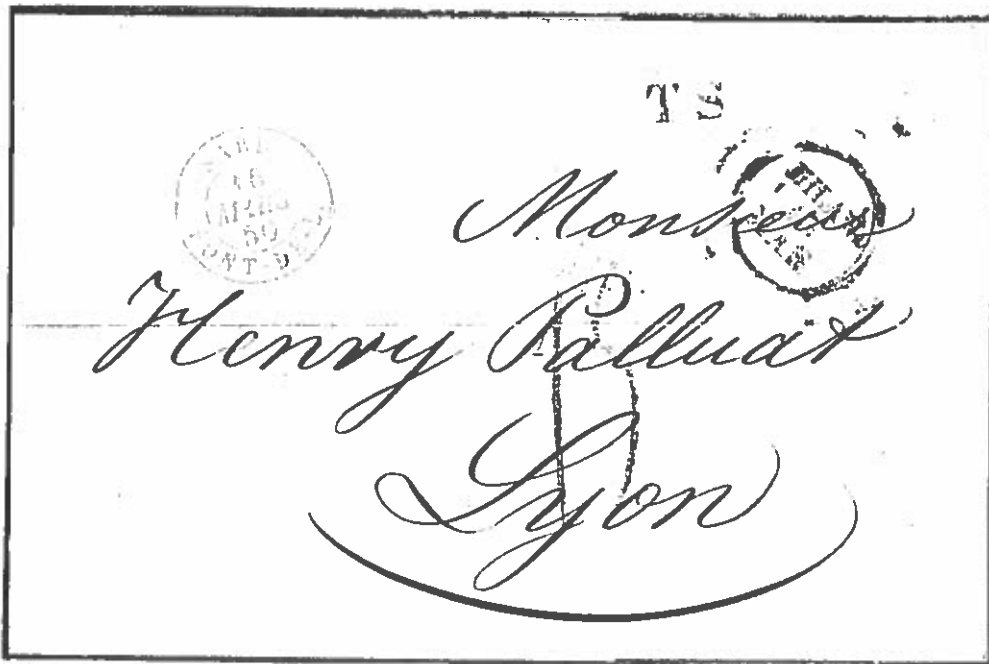 T S
16
MARS
50
Monsieur
Henry Palluat
Lyon